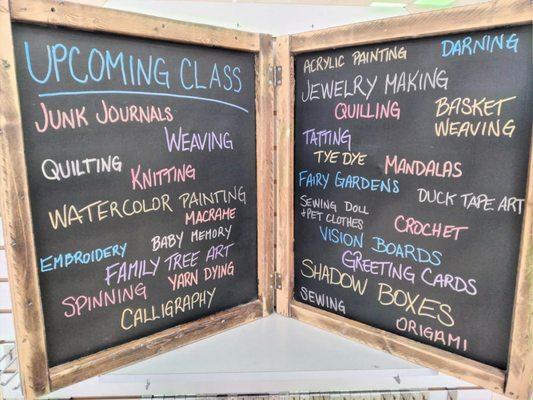 UPCOMING CLASS
JUNK JOURNALS
WEAVING
QUILTING
KNITTING
WATERCOLOR PAINTING
MACRAME
BABY MEMORY
EMBROIDERY
FAMILY TREE ART
YARN DYING
SPINNING
CALLIGRAPHY
ACRYLIC PAINTING
DARNING
JEWELRY MAKING
QUILLING
BASKET
WEAVING
TATTING
TYE DYE
MANDALAS
FAIRY GARDENS
DUCK TAPE ART
SEWING DOLL
+ PET CLOTHES
CROCHET
VISION BOARDS
GREETING CARDS
SHADOW BOXES
SEWING
ORIGAMI